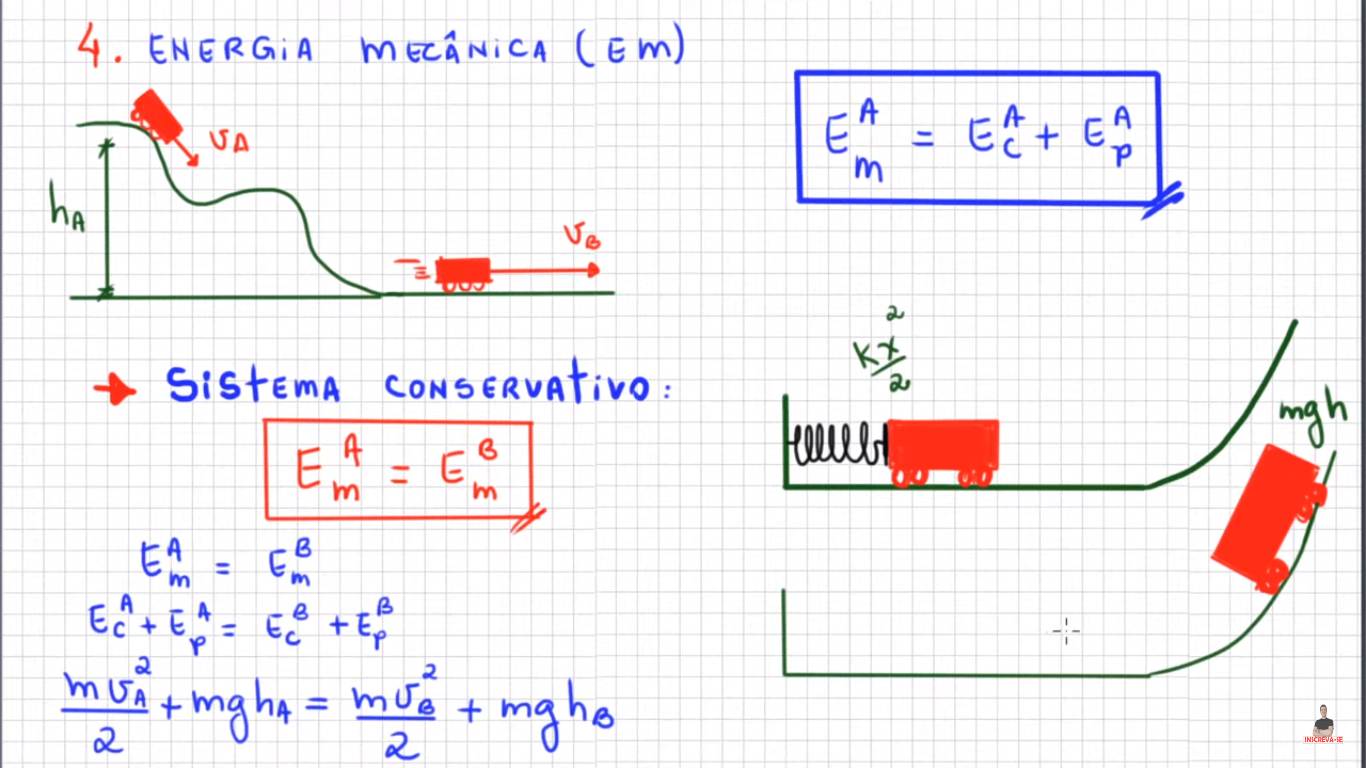 4. ENERGIA MECÂNICA (Em)
vA
hA
vB
→ SISTEMA CONSERVATIVO:
E_m^A = E_m^B
E_m^A = E_m^B
E_c^A + E_p^A = E_c^B + E_p^B
mv_A^2/2 + mghA = mv_B^2/2 + mghB
E_m^A = E_c^A + E_p^A
kx^2/2
mgh
INSCREVA-SE